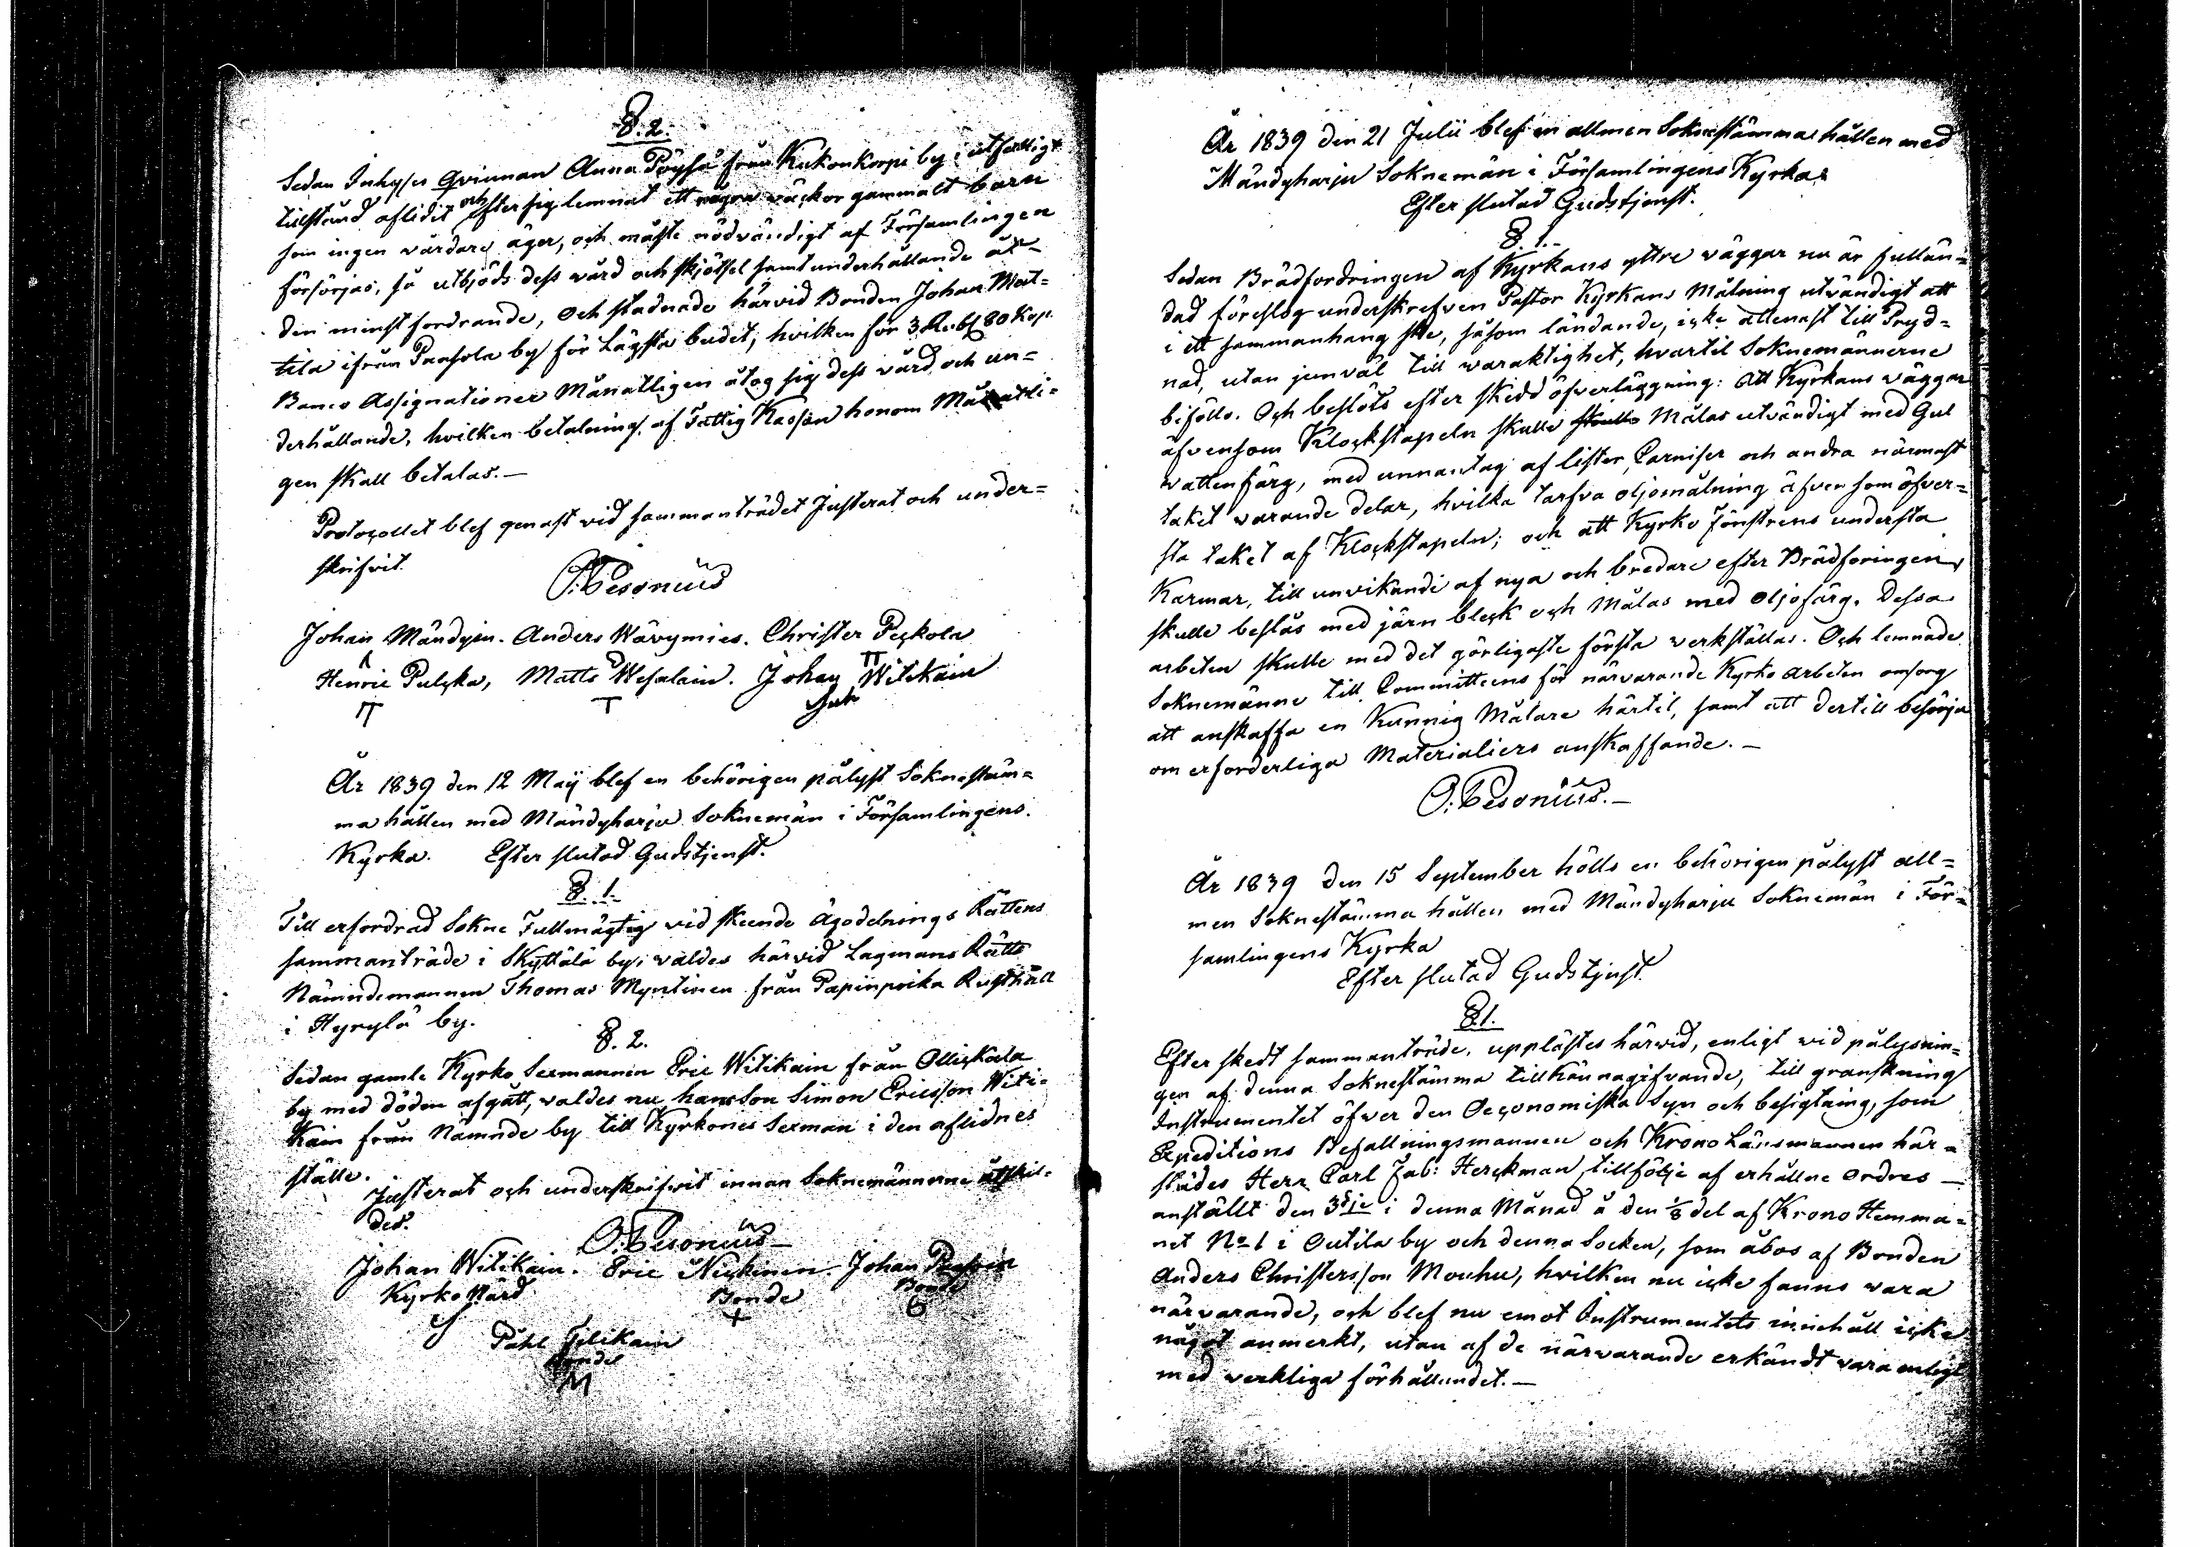 §. 2.
Sedan Inhyses Qvinnan Anna Pöyhä från Kukonkorpi by i utfattigt
tillstånd aflidit och efter sig lemnat ett några väckor gammalt barn
som ingen vårdare äger, och måste nödvändigt af Församlingen
försörjas, så utbjöds dess vård och skjötsel samt underhållande åt
den minst fordrande, och stadnade härvid Bonden Johan Mat=
tila ifrån Paasola by för Lägsta budet, hvilken för 3 Rub. 80 Kop.
Banco Assignationer Månatligen åtog sig dess vård och un=
derhållande, hvilken betalning af Fattig Kassan honom Månatli=
gen skall betalas.—
Protocollet blef genast vid sammanträdet Justerat och under=
skrifvit.
O: Pesonius
Johan Mändyin. Anders Wävymies. Christer Peckola
Henric Pulcka, Matts Wesalain. Johan Witikain
År 1839 den 12 Maij blef en behörigen pålyst Soknestäm=
ma hållen med Mändyharju Soknemän i Församlingens
Kyrka. Efter slutad Gudstjenst.
§. 1.
Till erfordrad Sokne Fullmägtig vid skeende Ägodelnings Rättens
sammanträde i Skyttälä by, valdes härvid Lagmans Rätts
Nämndemannen Thomas Myntinen från Papinpoika Rusthåll
i Hyrylä by.
§. 2.
Sedan gamle Kyrko Sexmannen Eric Witikain från Ollickala
by med döden afgått, valdes nu hans Son Simon Ericsson Witi=
kain från Nämnde by till Kyrkones Sexman i den aflidnes
ställe.
Justerat och underskrifvit innan Soknemännerne åtskil=
des.
O: Pesonius
Johan Witikain. Eric Nickinen. Johan Paasoin
Kyrko Värd Bonde Bonde
Påhl Tilikain
Bonde
M
År 1839 den 21 Julii blef en allmen Soknestämma hållen med
Mändyharju Soknemän i Församlingens Kyrka
Efter slutad Gudstjenst.
§. 1.
Sedan Brädfordringen af Kyrkans yttre väggar nu är fullän=
dad föreslog underskrefven Pastor Kyrkans Målning utvändigt att
i ett sammanhang ske, såsom ländande, icke allenast till Pryd=
nad, utan jemväl till varaktighet, hvartil Soknemännerne
biföllo. Och beslöts efter skedd öfverläggning: att Kyrkans väggar
äfvensom Klockstapeln skulle skulle Målas utvändigt med Gul
vattenfärg, med unnantag af lister, Carniser och andra närmast
taket varande delar, hvilka tarfva oljomålning äfven som öfver=
sta taket af Klockstapeln; och att Kyrko Fönstrens understa
Karmar, till unvikande af nya och bredare efter Brädforingen,
skulle beslås med järn bleck och Målas med oljofärg. Dessa
arbeten skulle med det görligaste första verkställas. Och lemnade
Soknemänne till Committeens för närvarande Kyrko arbeten omsorg
att anskaffa en Kunnig Målare härtil, samt att dertill besörja
om erforderliga Materialiers anskaffande.—
O: Pesonius.—
År 1839 den 15 September hölls en behörigen pålyst all=
men Soknestämma hållen med Mändyharju Soknemän i För=
samlingens Kyrka
Efter slutad Gudstjenst
§ 1.
Efter skedt sammanträde, upplästes härvid, enligt vid pålysnin=
gen af denna Soknestämma tillkännagifvande, till granskning
Instrumentet öfver den Oeconomiska Syn och besigtning, som
Expeditions Befallningsmannen och Krono Länsmannen här=
städes Herr Carl Fab: Herckman tillfölje af erhållne ordres —
anställt den 3dje i denna Månad å den 1/8 del af Krono Hemma=
net No 1 i Outila by och denna Socken, som åbos af Bonden
Anders Christersson Mouhu, hvilken nu icke fanns vara
närvarande, och blef nu emot Instrumentets innehåll icke
något anmerkt, utan af de närvarande erkändt vara enligt
med verkliga förhållandet.—